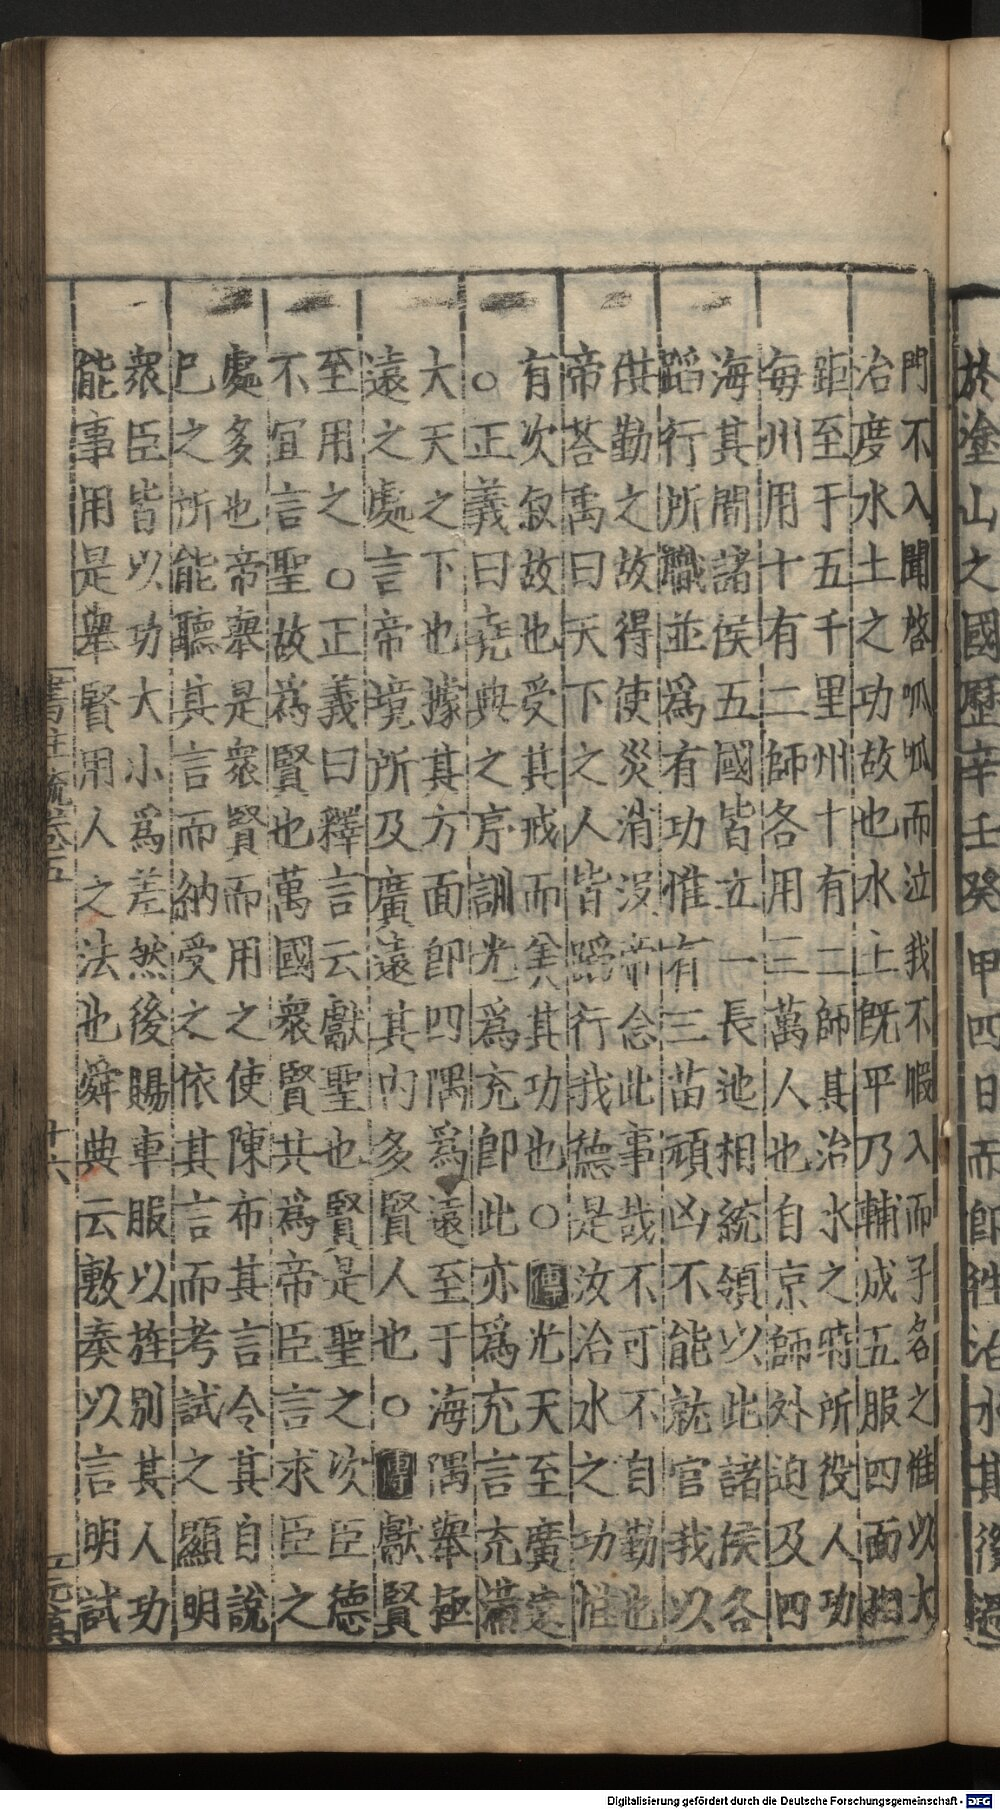 於塗山之國歷辛壬癸甲四日而即往治水其後過
門不入聞啓呱呱而泣我不暇入而子名之惟以大
治度水土之功故也水土既平乃輔成五服四面相
距至于五千里州十有二師其治水之時所役人功
每州用十有二師各用三萬人也自京師外迫及四
海其間諸侯五國皆立一長迆相統領以此諸侯各
蹈行所職並爲有功惟有三苗頑凶不能就官我以
供勤之故得使災消沒帝念此事哉不可不自勤也
帝荅禹曰天下之人皆蹈行我德是汝治水之功惟
有次叙故也受其戒而美其功也○傳光天至廣遠
○正義曰堯典之序訓光爲充即此亦爲充言充滿
大天之下也據其方面即四隅爲遠至于海隅舉極
遠之處言帝境所及廣遠其內多賢人也○傳獻賢
至用之○正義曰釋言云獻聖也賢是聖之次臣德
不宜言聖故爲賢也萬國衆賢共爲帝臣言求臣之
處多也帝舉是衆賢而用之使陳布其言令其自說
已之所能聽其言而納受之依其言而考試之顯明
衆臣皆以功大小爲差然後賜車服以旌別其人功
能事用是舉賢用人之法也舜典云敷奏以言明試
書注疏卷五
十六